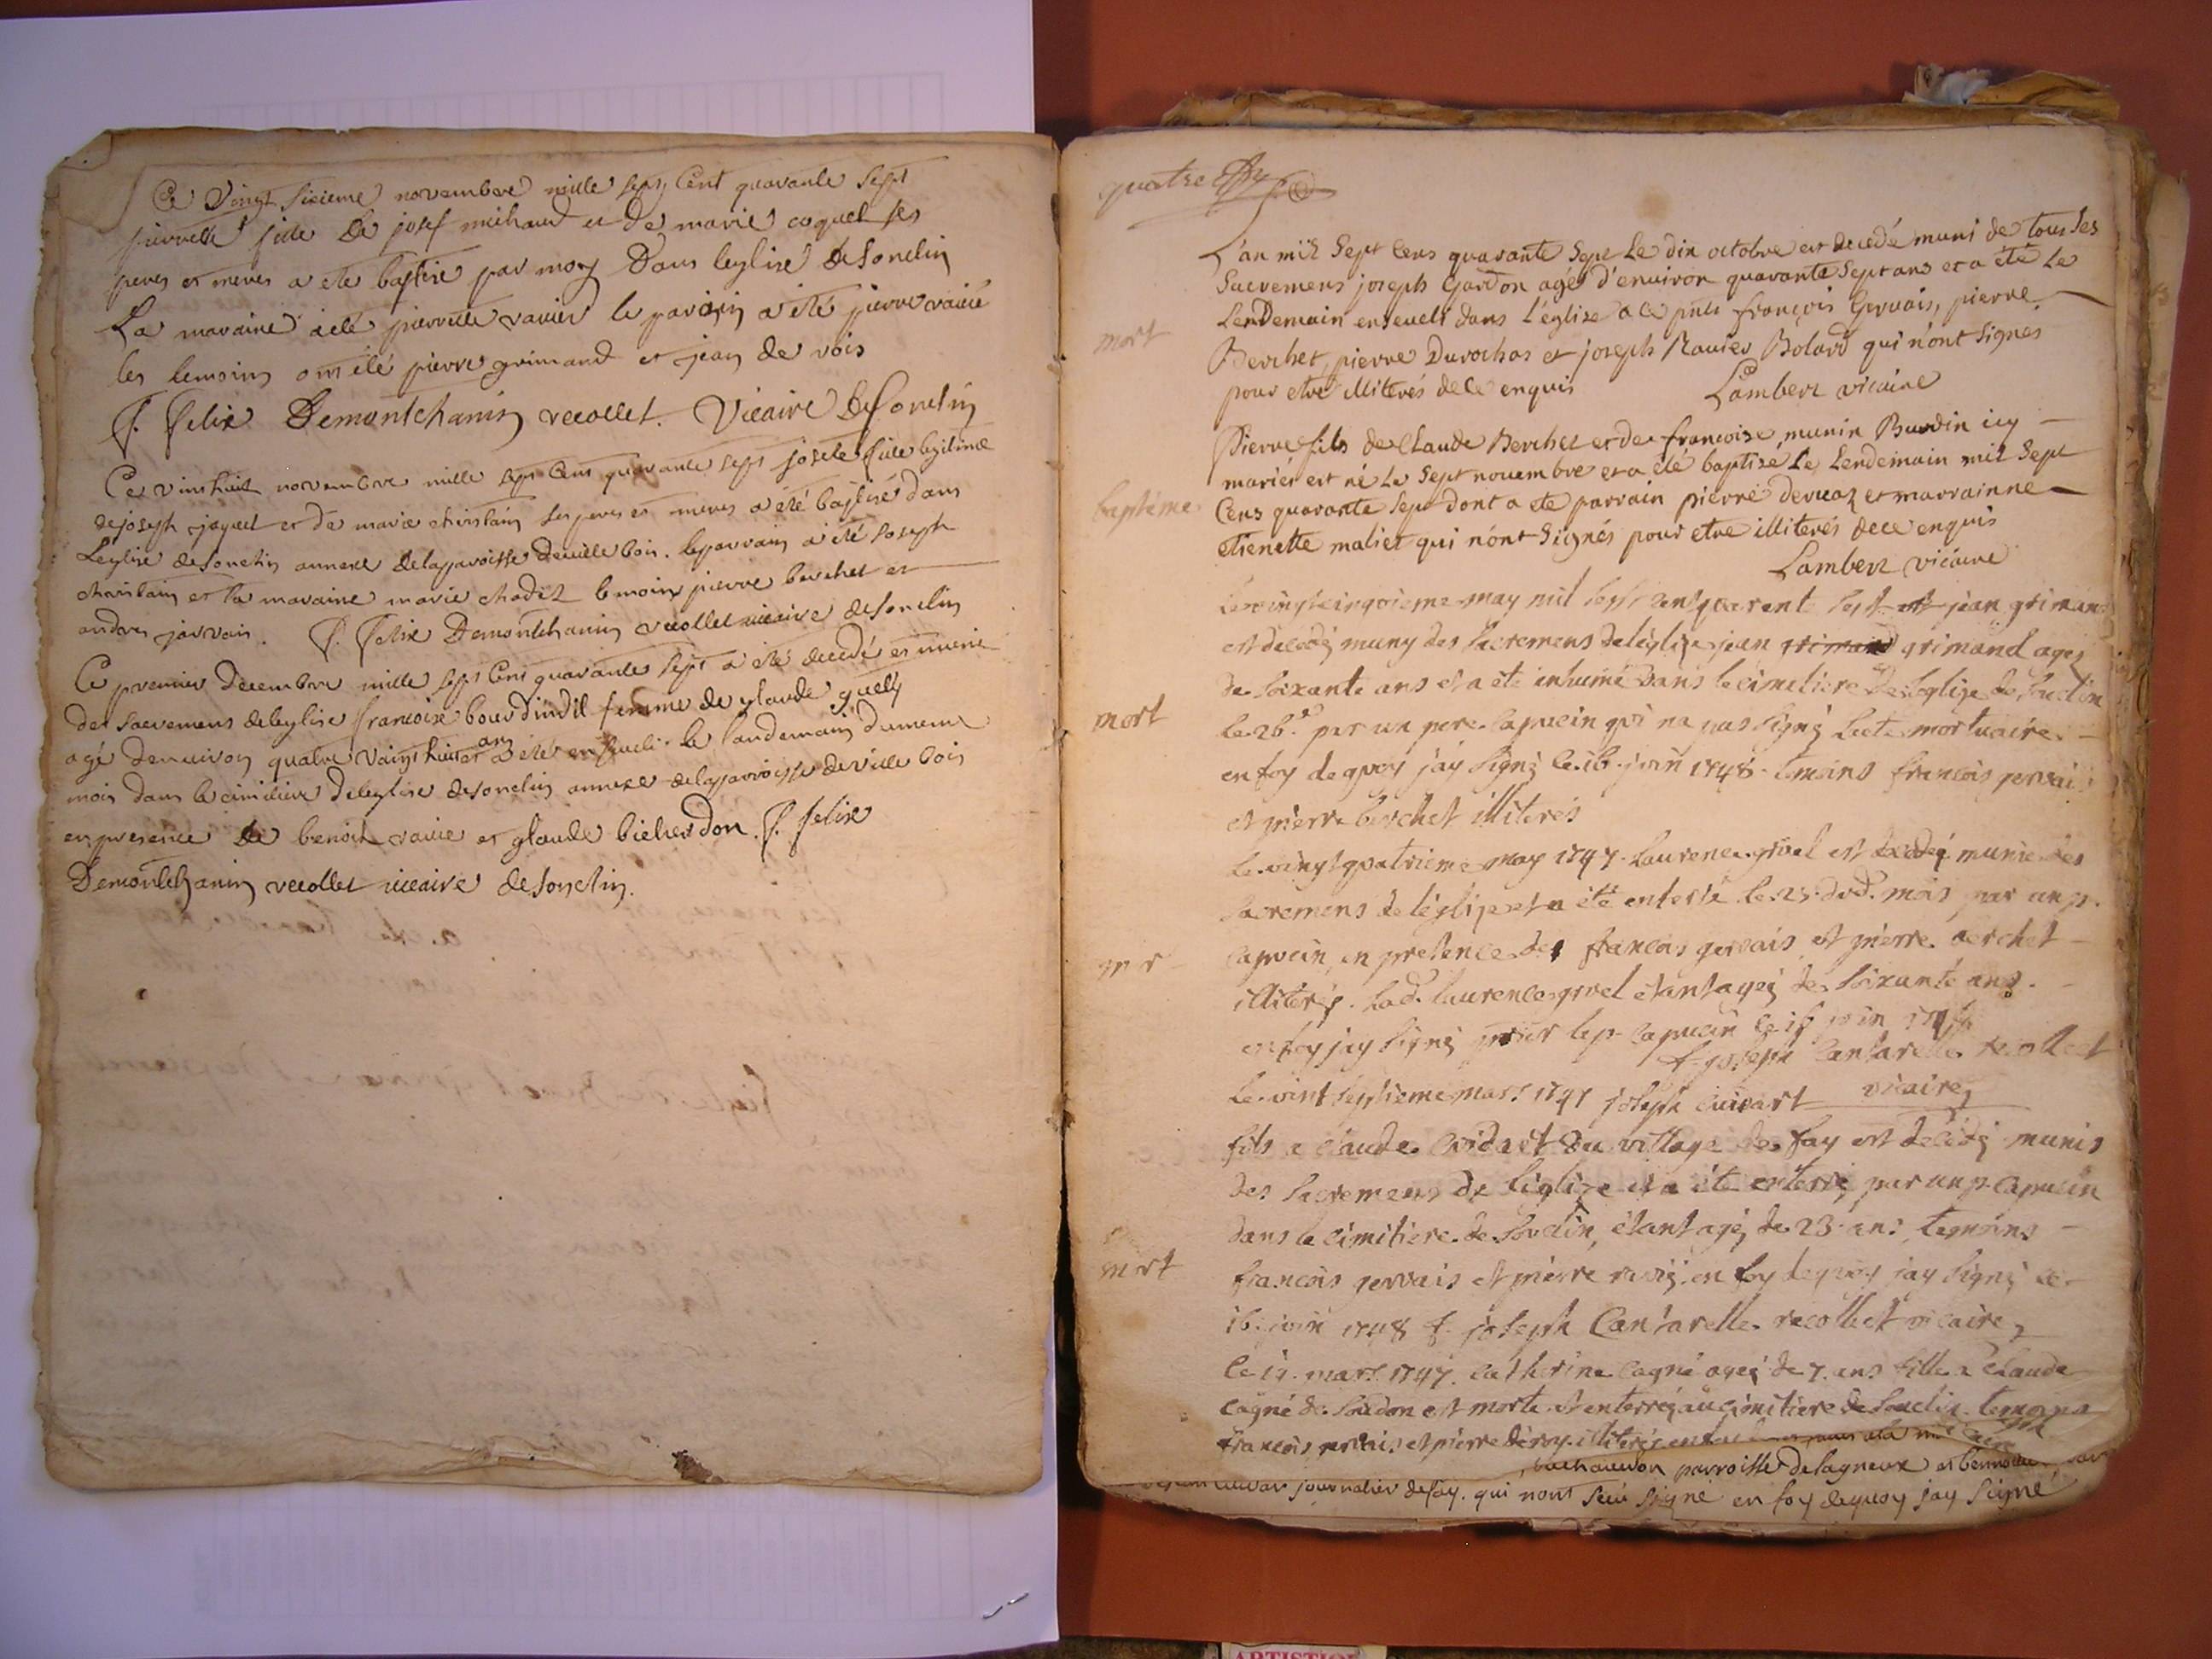 Ce Vingt Sixieme novembre mille sept Cent quarante Sept
pierrette fille De josef michaud et de marie coquet ses
peres et meres a ete baptise par moy Dans leglise deSouclin
La maraine a eté pierrette ravier le parain a été pierre ravie
les temoins ont été pierre grimand et jean de rois
f. felix Demontchanin recollet. Vicaire deSouclin
Ce vint huit novembre mille sept Cent quarante sept josete fille legitime
de joseph jaquet et de marie christain ses peres et meres a été baptisé dans
Leglise desouclin annexe delapparoisse deville bois. le parrain a été Joseph
christain et la maraine marie chadet temoins pierre berchet et
andres jarvais. f. felix Demontchanin recollet vicaire desouclin
Ce premier Decembre mille sept Cent quarante sept a été decedé et munie
des sacremens deleglise francoise bourdindil femme de glaude guelly
agé denuiron quatre vaingt huit ans et a été enseveli le landemain dumeme
mois dans le cimitiere deleglise desouclin annexe delapparroisse deville bois
en presence de benoit ravie et glaude bicherdon. f. felix
Demontchanin recollet vicaire desouclin.
quatre
L'an mil Sept Cens quarante Sept Le dix octobre est decedé muni de tous ses
Sacremens joseph Gardon agé d'enuiron quarante Sept ans et a eté Le
mort
LenDemain enseueli dans l'église a ce pnts françois Gervais, pierre
Berchet, pierre Durochas et joseph Rauier Bolard qui n'ont Signés
pour etre illiterés de ce enquis Lambert vicaire
Pierre fils de Claude Berchet et de francoise munin Burdin icy
mariés est né Le Sept nouembre et a eté baptisé Le Lendemain mil Sept
baptéme
Cens quarante Sept dont a ete parrain pierre deruaz et marrainne
etienette maliet qui n'ont Signés pour etre illiterés dece enquis
Lambert vicaire
Le vingt cinqoieme may mil sept cent quarente sept est jean grimand
est decedé muny des sacremens de léglize jean grimand grimand agé
de soixante ans et a eté inhumé dans le cimetiere de leglize de Souclin
mort
le 26e par un pere capucin qui na pas signé lacte mortuaire.
en foy de quoy jay signé le 16 juin 1748. temoins francois gervais
et pierre berchet illiterés
Le vingt quatrieme may 1747. laurence grivel est decedé munie des
sacremens de léglize et a été enterré le 25. dud. mois par un p.
mor
capucin, en presence de francois gervais et pierre berchet
illiterés. Lad. laurence grivel etant ageé de soixante ans.
en foy jay signé pour le p. capucin ce 16 juin
f. joseph Cantarelle recollect
Le vint septieme mars 1747 joseph cuivart vicaire
fils a claude du village de fay est decedé munis
des sacremens de léglize et a eté enterré, par un p. capucin
dans le cimitiere de Souclin, étant agé de 23 ans, temoins
mort
francois gervais et pierre en foy de quoy jay signé ce
16. juin 1748 f. joseph Cantarelle recollect vicaire
Le 19. mars 1747. catherine cagne ageé de 7. ans fille a Claude
cagné de Soudon est morte et enterré au cimitiere de Souclin. temoins
francois gervais et pierre illiterés
parroisse delagneux et
journalier defay. qui nont seu signé en foy dequoy jay signé